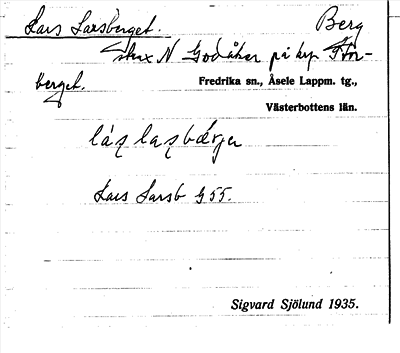 Lars Larsberget. Berg
strax N Godåker på kp. Tön-
berget. Fredrika sn., Åsele Lappm. tg.,
Västerbottens län.
Lars Larsb G 55.
Sigvard Sjölund 1935.